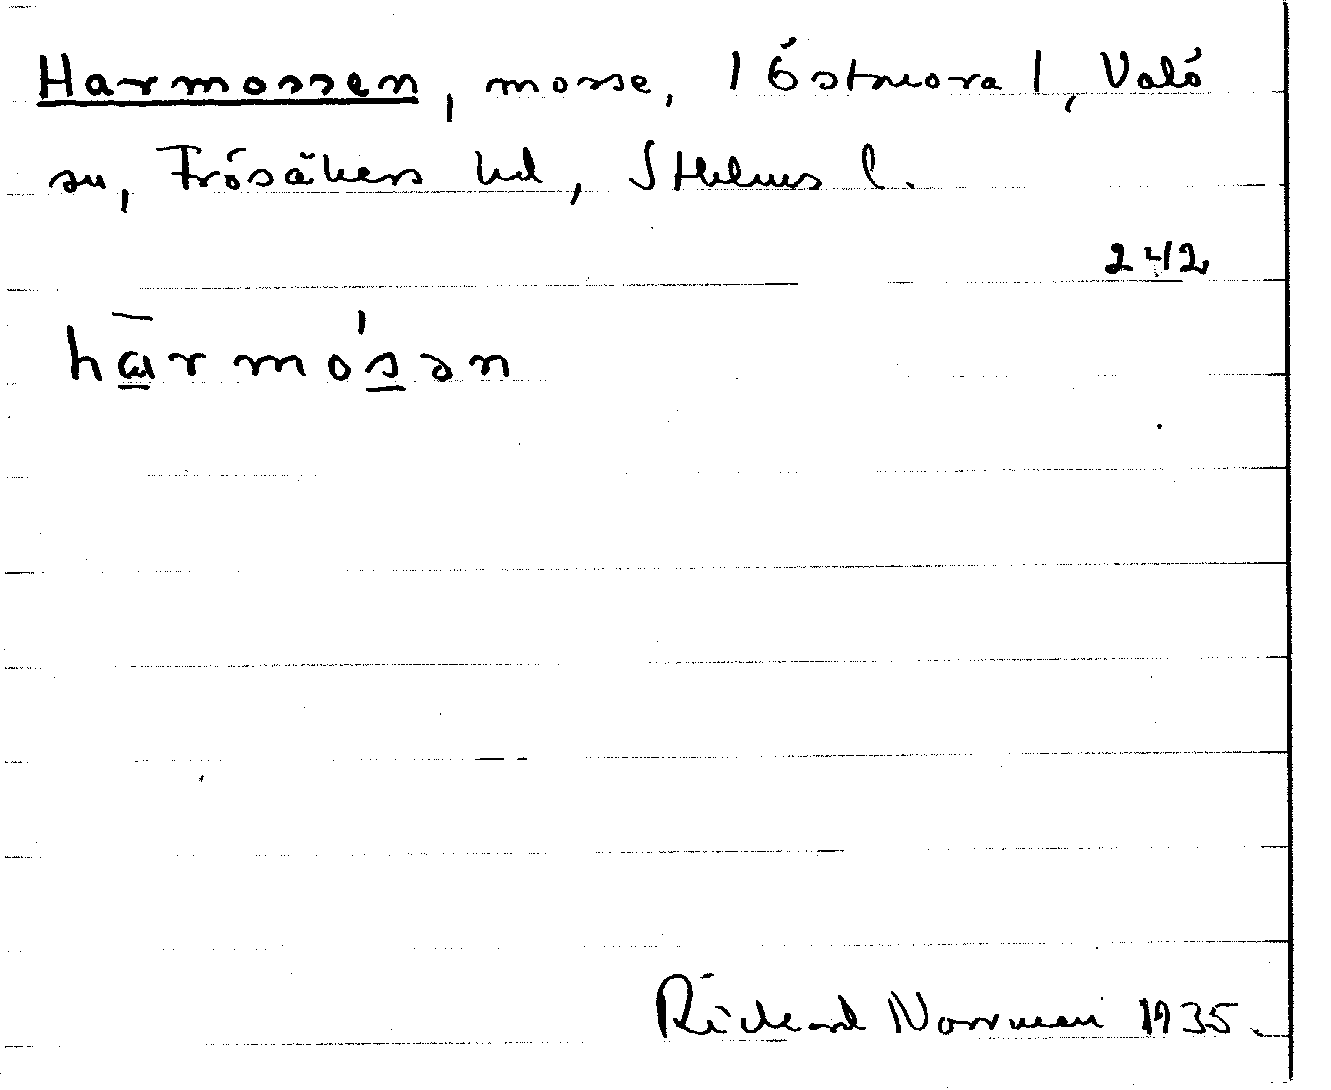 Harmossen, mosse, /Östmora/, Valö
sn, Frösåkers hd, Sthlms l.
242
harmósən
Richard Norrman 1935.